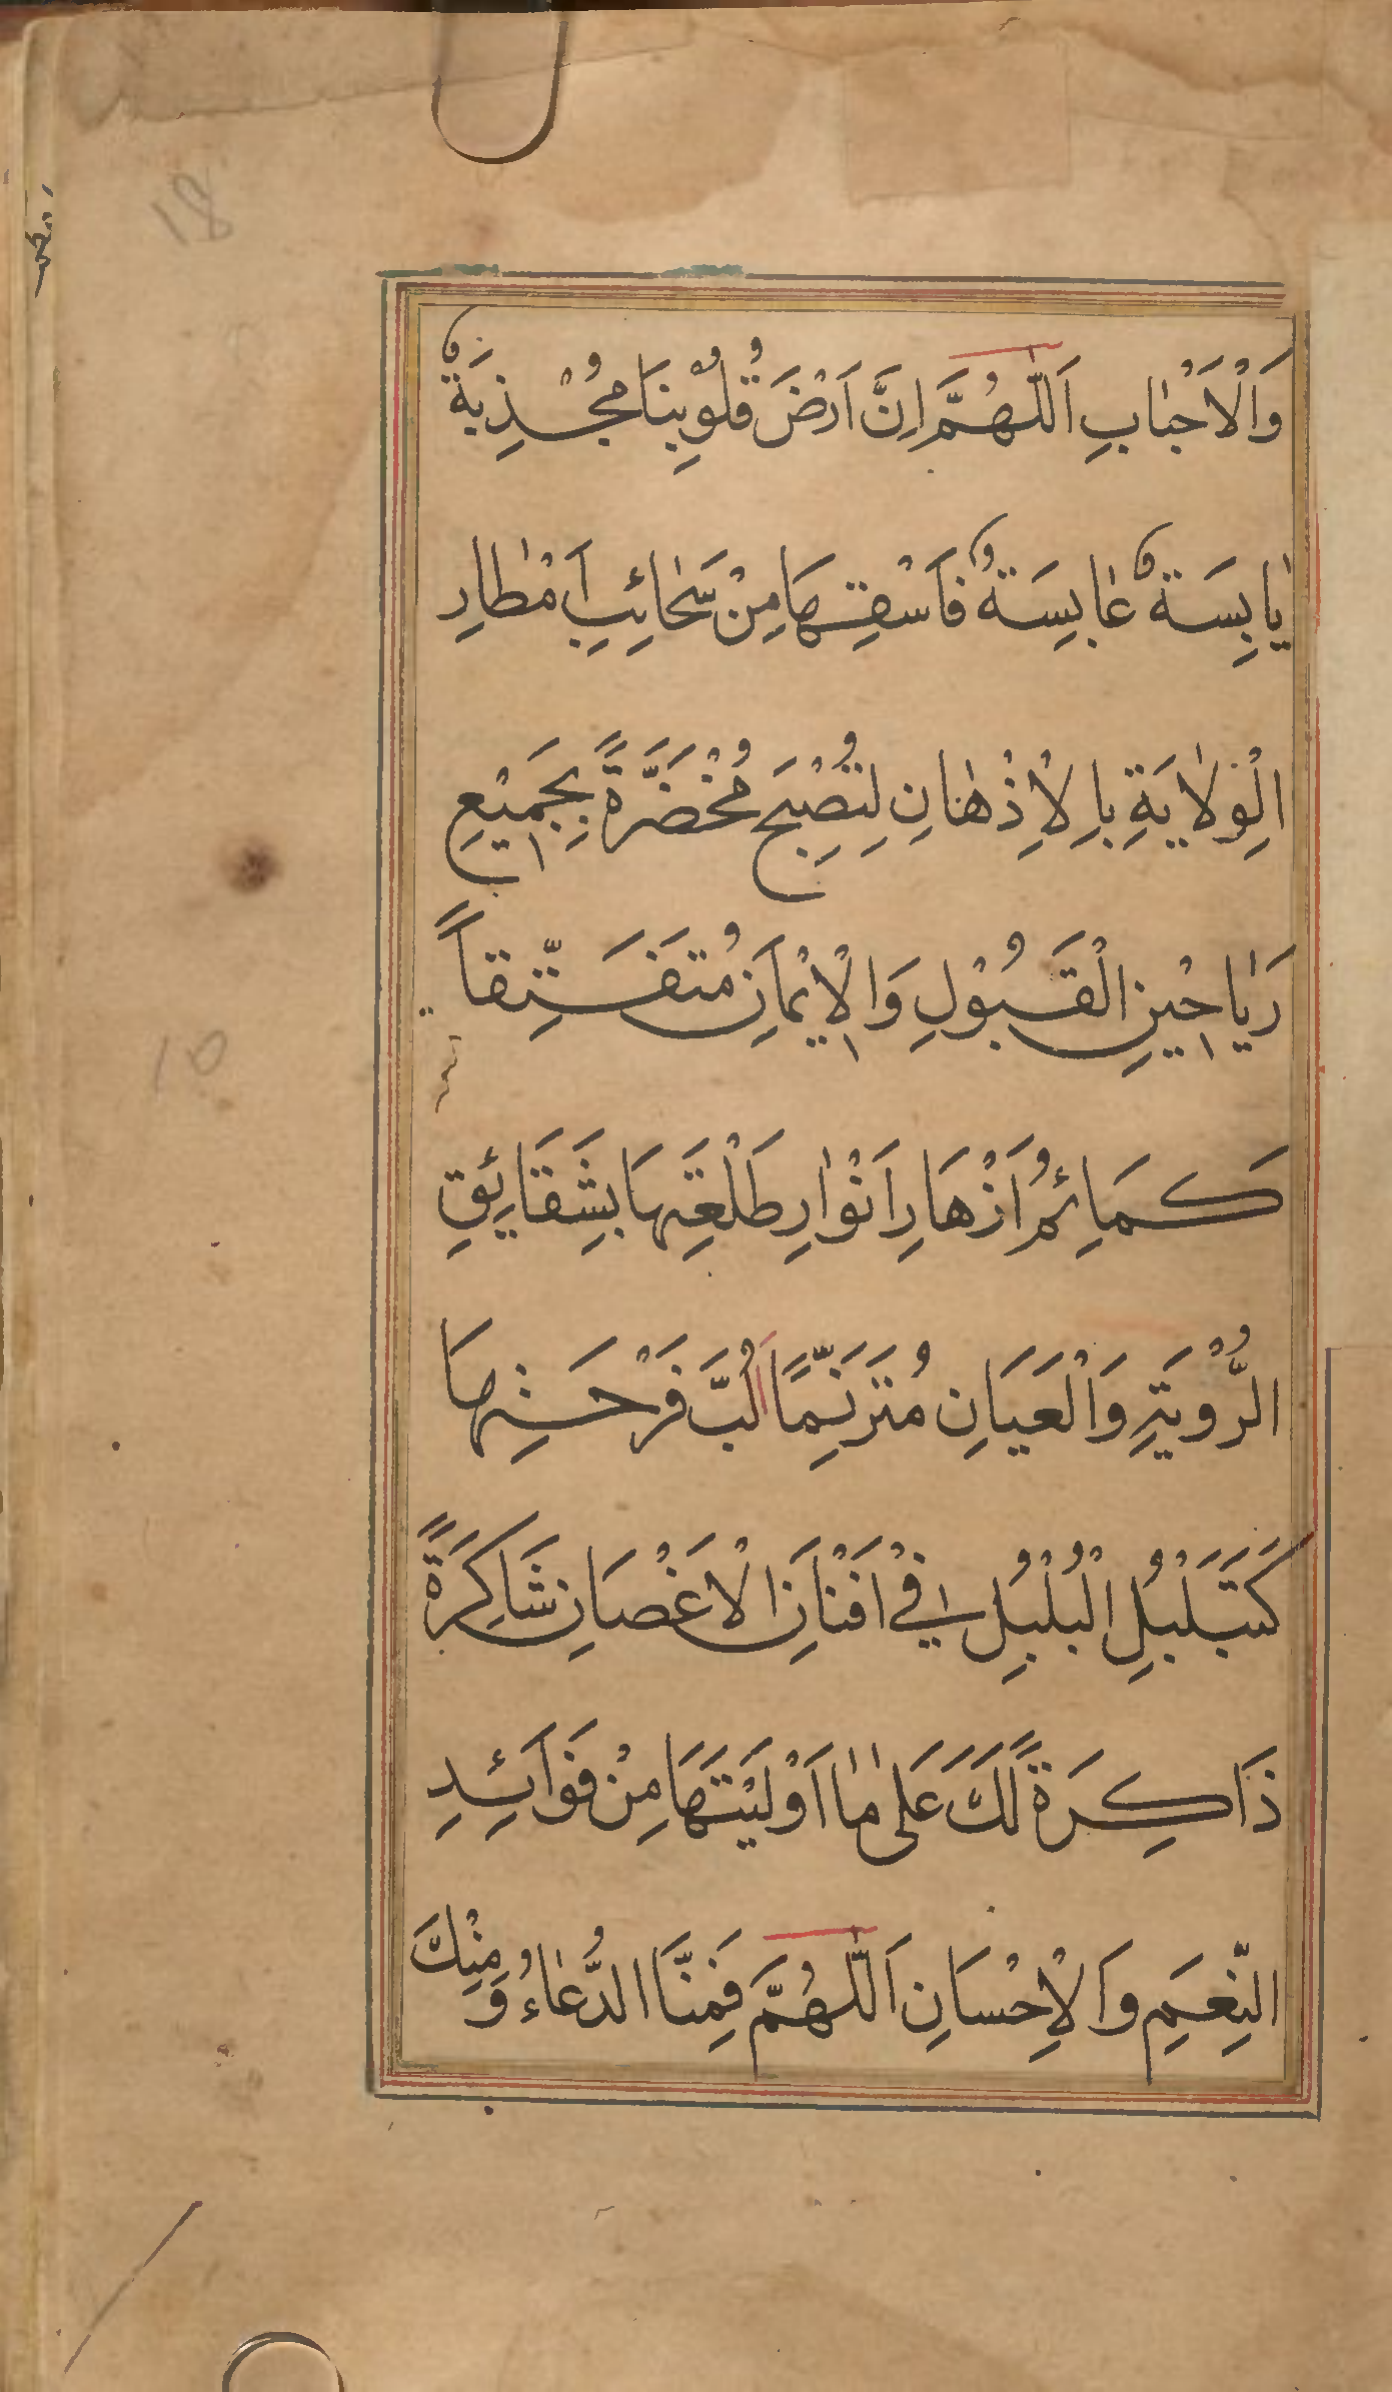 وَالْاَحْبٰابِ اَللّٰهُمَّ اِنَّ اَرْضَ قُلُوْبِنَا مُجْذِبَةٌ
يٰابِسَةٌ عٰابِسَةٌ فَاَسْقِهَا مِنْ سَحٰائِبِ اَمْطٰارِ
الْوِلٰايَةِ بِالْاِذْهٰانِ لِتُصْبِحَ مُخْضَرَّةً بِجَمِيْعِ
رَيٰاحِيْنِ الْقَبُوْلِ وَالْاِيْمَانِ مُتَفَتِّقاً
كَمَائِمُ اَزْهَارِ اَنْوٰارِ طَلْعَتِهَا بِشَقَايِقِ
الرُّوْيَةِ وَالْعَيَانِ مُتَرَنِّمًا لُبَّ فَرْحَتِهَا
كَتَبَلْبُلِ الْبُلْبُلِ فِيْ اَفْنَانِ الْاَغْصَانِ شَاكِرَةً
ذَاكِرَةً لَكَ عَلٰى مٰا اَوْلَيْتَهَا مِنْ فَوَائِدِ
النِّعَمِ وَالْاِحْسَانِ اَللّٰهُمَّ فَمِنَّا الدُّعٰاءُ وَمِنْكَ
18
10